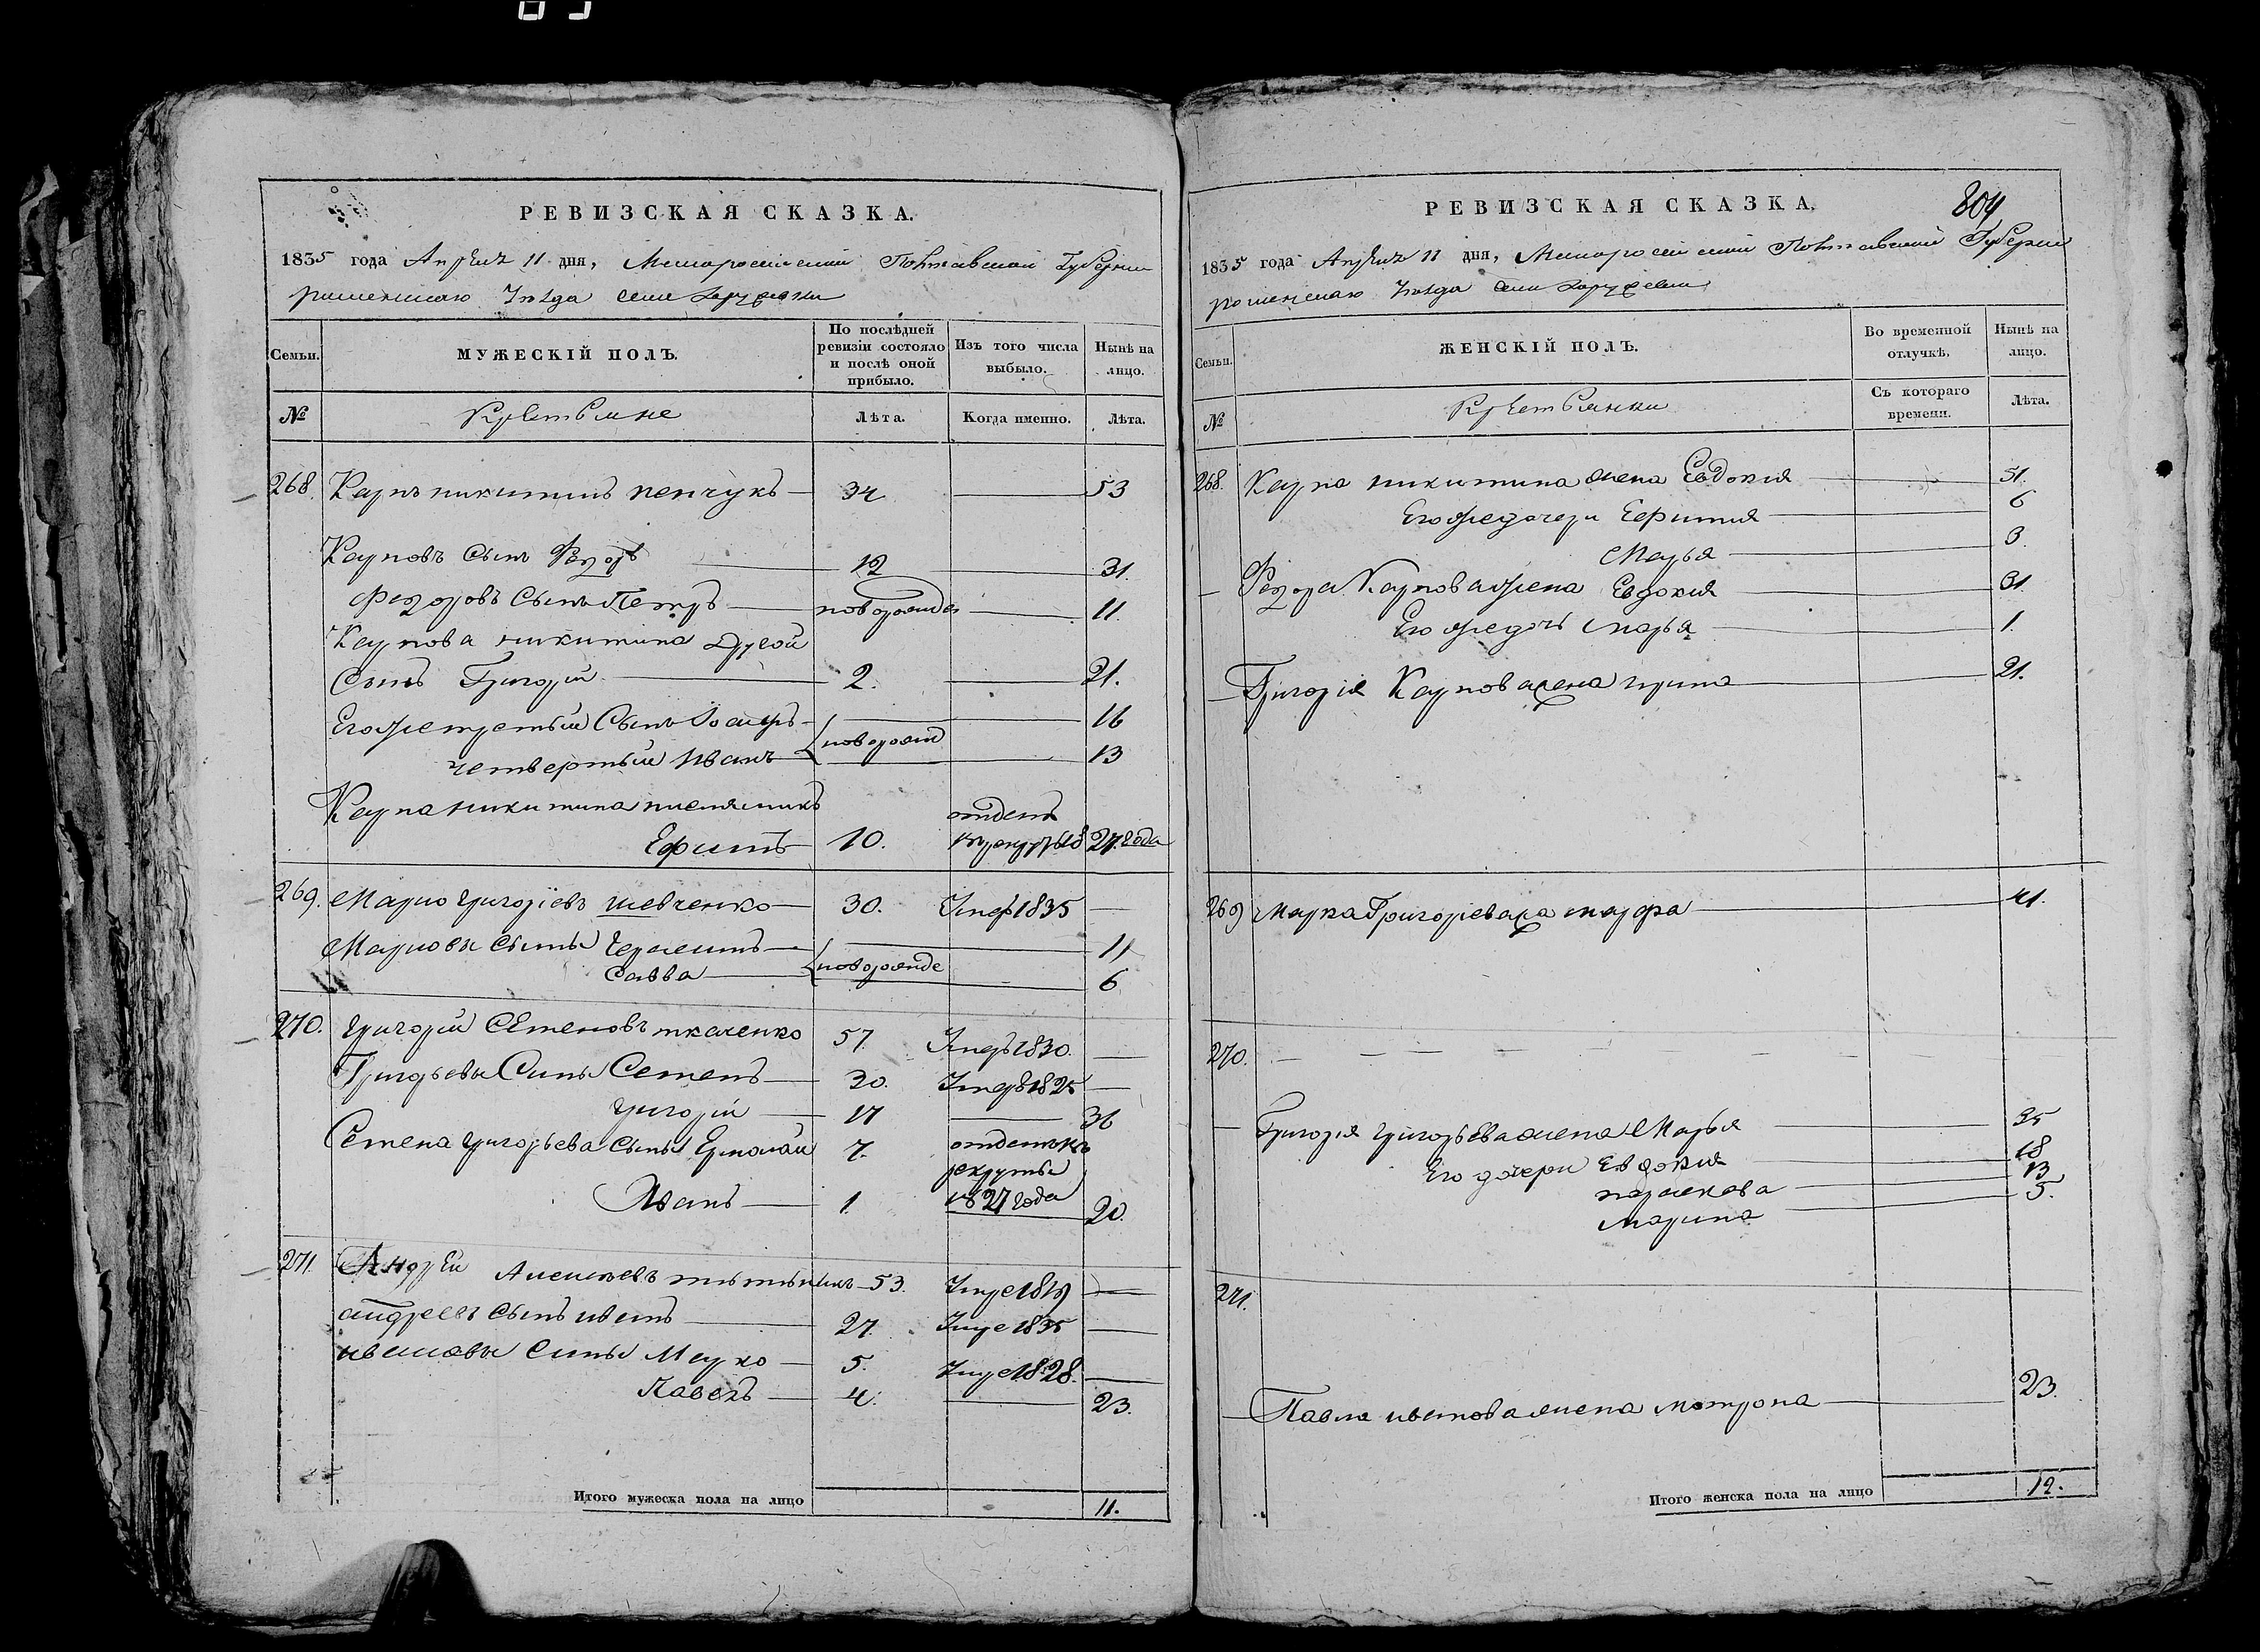 РЕВИЗСКАЯ СКАЗКА.
1835 года Апреля 11 дня, Малороссийской Полтавской Губернии
роменскаго Уезда села
Семьи.
МУЖЕСКІЙ ПОЛЪ.
По послѣдней ревизіи состояло и послѣ оной прибыло.
Изъ того числа выбыло.
Нынѣ на лицо.
№
Крестьяне
Лѣта.
Когда именно.
Лѣта.
268. Карпъ никитинъ 34 53
Карповъ сынъ Федоръ 12 31.
Федоровъ сынъ Петръ новорожден 11.
Карпова никитина другой
сынъ Григорій 2. 21.
Егоже третьій сынъ 16
новорожд
четвертый Иванъ 13
Карпа никитина племянникъ отданъ
Ефимъ 10. в рекруты 1827 года
269. Марко григоріевъ шевченко 30. Умер 1835
Марковы сыны Герасимъ 11
новорожде
савва 6
270. григорій Семеновъ ткаченко 57. Умеръ 1830.
Григорьевы Сины Семенъ 30. Умеръ 1825
григорій 17 36
Семена григорьева сыны Ермолай 7. отданъ въ
рекруты
Иванъ 1. 1827 года 20.
271. Андрей Алексѣевъ 53. Умре 1819
андреевъ сынъ иванъ 27. Умре 1835
ивановы сины Марко 5. Умре 1828.
Павелъ 4. 23.
Итого мужеска пола на лицо 11.
РЕВИЗСКАЯ СКАЗКА.
804
1835 года Апреля 11 дня, Малороссийской Полтавской Губернии
роменскаго Уезда села
Семьи.
ЖЕНСКІЙ ПОЛЪ.
Во временной отлучкѣ.
Нынѣ на лицо.
№
Крестьянки
Съ котораго времени.
Лѣта.
268. Карпа никитина жена Евдокия 51.
Егоже дочери Ефимия 6
Марья 3.
Федора Карпова жена Евдокия 31
Егоже дочь марья 1.
Григория Карпова жена ирина 21.
269 марка Григоріева жена марфа 41.
270.
Григория григорьева жена Марья 35
Его дочери Евдокия 18
параскева 13
марина 5.
271.
Павла иванова жена мотрона 23.
Итого женска пола на лицо 12.